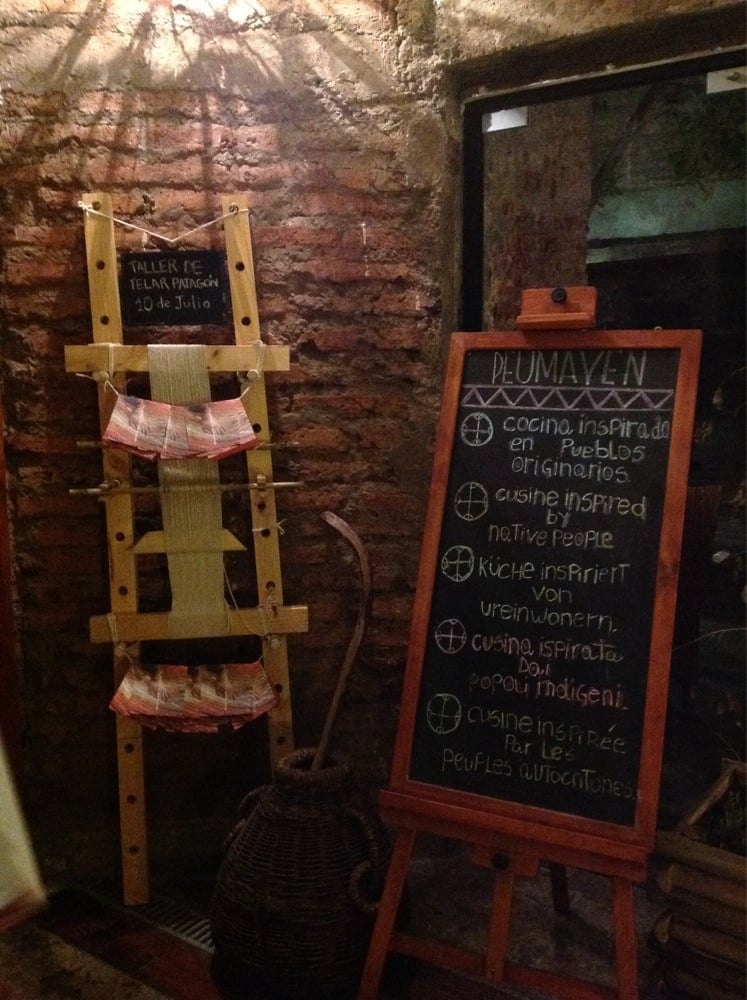 TALLER DE
TELAR PATAGÓN
10 de Julio
PEUMAYEN
cocina inspirada
en Pueblos
originarios.
cusine inspired
by
native People
Küche inspiriert
von
ureinwonern.
cusina ispirata
Dai
popoli indigeni.
cusine inspirée
Par Les
peufles autocntones.